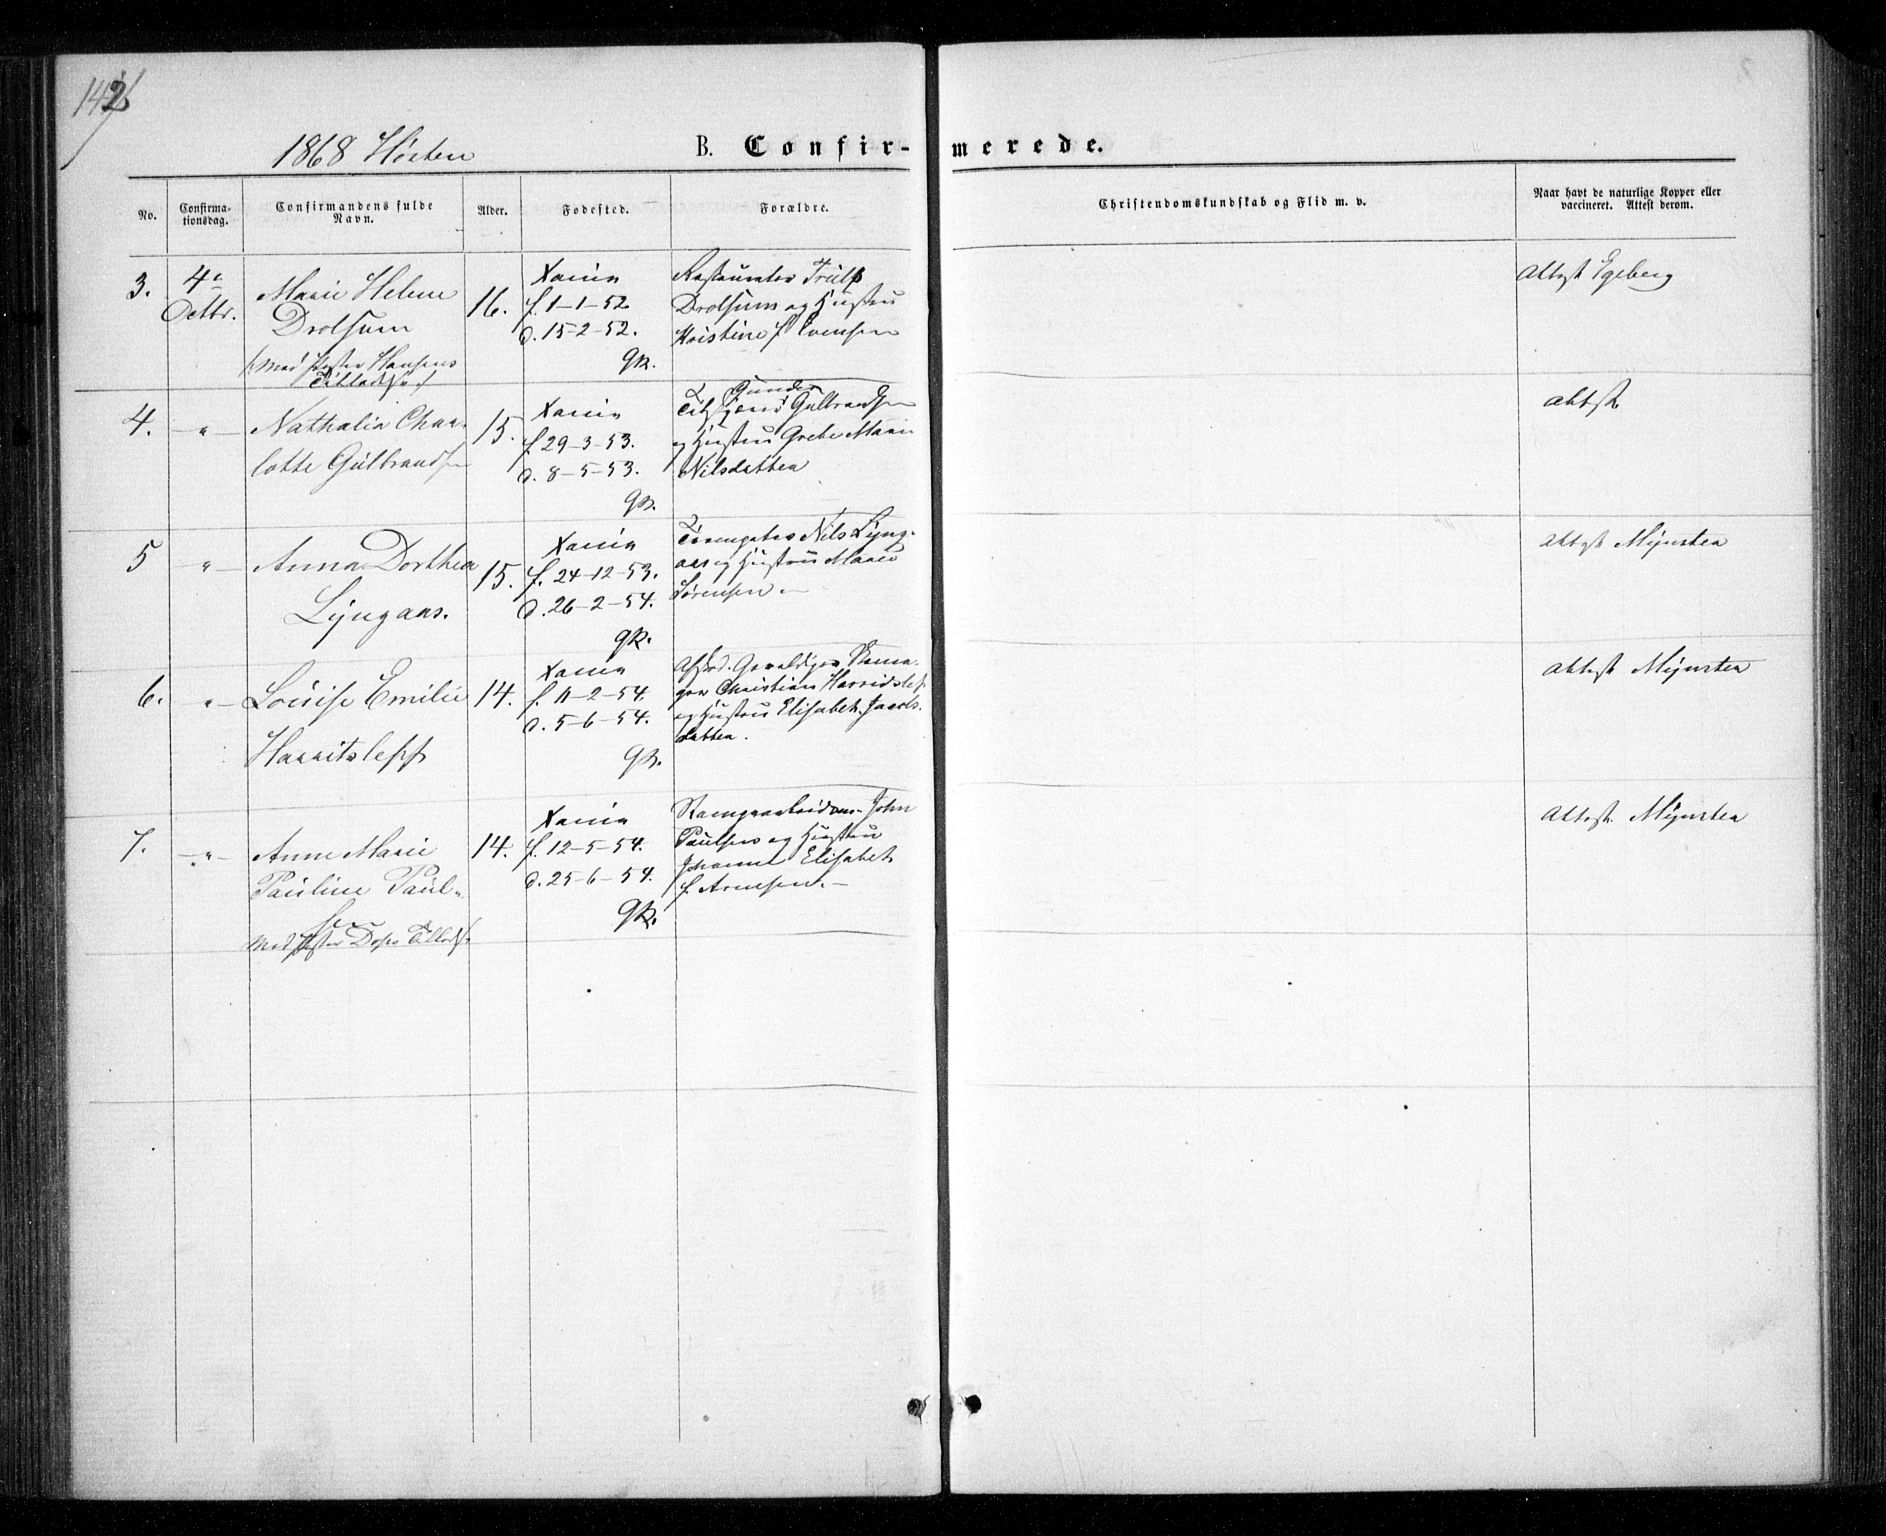 142
1868 Høsten
B. Confir-merede.
No.
Confirma-
tionsdag.
Confirmandens fulde
Navn.
Alder.
Fødested.
Forældre.
Christendomskundskab og Flid m. v.
Naar havt de naturlige Kopper eller
vaccineret. Attest derom.
3.
4de
Octbr.
Marie Helene
Drolsum
(Med Pastor Hansens
Tilladelse)
16.
Xania
f. 1-1-52
d. 15-2-52.
gR.
Restaurateur Truls
Drolsum og Hustru
Kristine f. Evensen
Attest Egeberg
4.
-"-
Nathalia Char-
lotte Gulbrandsen
15.
Xania
f. 29-3-53.
d. 8-5-53.
gR.
Gunder
Gulbrandsen
og Hustru Grete Marie
Nilsdatter
attest
5
"-
Anna Dorthea
Lyngaas.
15.
Xania
f. 24-12-53.
d. 26-2-54.
gR.
Nils Lyng-
aas og Hustru Maren
Sørensen
attest Mynster
6.
"-
Louise Emilie
Harritsleff
14.
Xania
f. 11-2-54.
d. 5-6-54.
gR.
Christian Harridslef
og Hustru Elisabet Jacobs-
datter.
attest Mynster
7.
-"-
Anne Marie
Pauline Paul-
sen
Med Pastor Tillads.
14.
Xania
f. 12-5-54.
d. 25-6-54.
gR.
John
Paulsen og Hustru
Johanne Elisabet
f. Arnesen.
Attest. Mynster